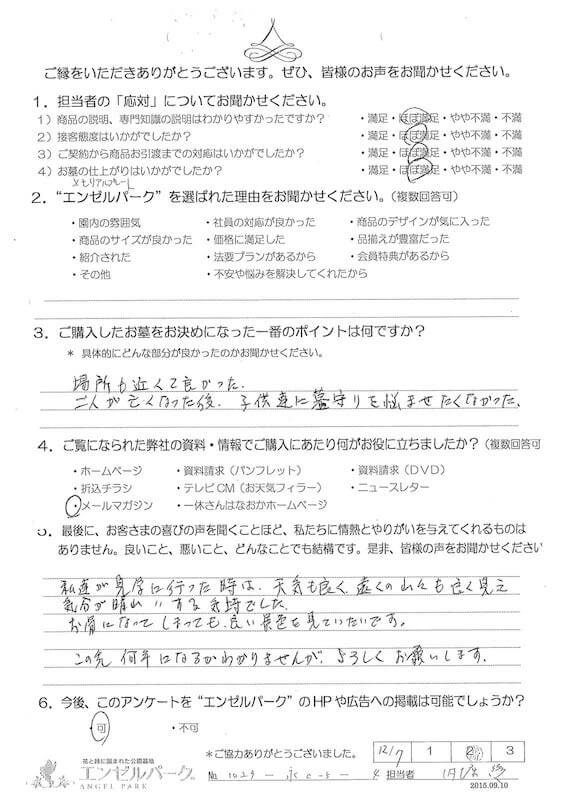 ご縁をいただきありがとうございます。ぜひ、皆様のお声をお聞かせください。
1. 担当者の「応対」についてお聞かせください。
1）商品の説明、専門知識の説明はわかりやすかったですか？ ・満足・ほぼ満足・やや不満・不満
2）接客態度はいかがでしたか？ ・満足・ほぼ満足・やや不満・不満
3）ご契約から商品お引渡までの対応はいかがでしたか？ ・満足・ほぼ満足・やや不満・不満
4）お墓の仕上がりはいかがでしたか？ ・満足・ほぼ満足・やや不満・不満
メモリアルプレート
2. “エンゼルパーク”を選ばれた理由をお聞かせください。（複数回答可）
・園内の雰囲気 ・社員の対応が良かった ・商品のデザインが気に入った
・商品のサイズが良かった ・価格に満足した ・品揃えが豊富だった
・紹介された ・法要プランがあるから ・会員特典があるから
・その他 ・不安や悩みを解決してくれたから
3. ご購入したお墓をお決めになった一番のポイントは何ですか？
* 具体的にどんな部分が良かったのかお聞かせください。
場所も近くて良かった.
二人が亡くなった後、子供達に墓守りを悩ませたくなかった、
4. ご覧になられた弊社の資料・情報でご購入にあたり何がお役に立ちましたか？（複数回答可
・ホームページ ・資料請求（パンフレット） ・資料請求（DVD）
・折込チラシ ・テレビCM（お天気フィラー） ・ニュースレター
・メールマガジン ・一休さんはなおかホームページ
5. 最後に、お客さまの喜びの声を聞くことほど、私たちに情熱とやりがいを与えてくれるものは
ありません。良いこと、悪いこと、どんなことでも結構です。是非、皆様の声をお聞かせください
私達が見学に行った時は、天気も良く、遠くの山々も良く見え
気分が晴れ〃する気持でした.
お骨になってしまっても、良い景色を見ていたいです。
この先 何年になるかわかりませんが、よろしくお願いします.
6. 今後、このアンケートを“エンゼルパーク”のHPや広告への掲載は可能でしょうか？
・可 ・不可
*ご協力ありがとうございました。 12/7 1 2 3
花と緑に囲まれた公園墓地
エンゼルパーク®
ANGEL PARK
No 1029 担当者
2015.09.10